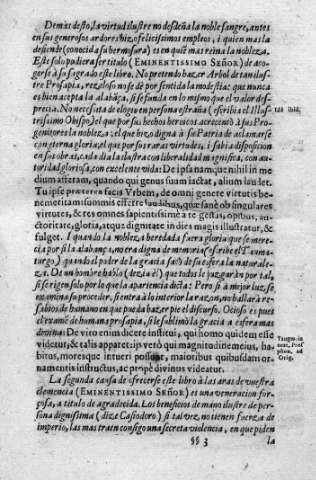 Demàs desto, la virtud ilustre no desdeña la noble sangre, antes
en sus generosos ardores viue, o felicissimos empleos, i quien mas la
desiende (conocida su hermosura) es en quiē mas reina la nobleza.
Este solo pudiera ser titulo (EMINENTISSIMO SEÑOR) de aco-
gerse à su sagrado este libro. No pretendo hazer Arbol de tan ilus-
tre Prosapia, rezeloso no se dè por sentida la modestia; que nunca
es bien acepta la alabāça, si se funda en lo mismo que el valor des-
precia. No necessita de elogio en persona estraña (escribia el Illus-
trissimo Obispo) el que por sus hechos heroicos acrecentò à sus Pro-
genitores la nobleza: el que hizo digna à su Patria de aclamarse
con eterna gloria, el que por sus raras virtudes, i sabia disposicion
en sus obras, cada dia la ilustra con liberalidad magnifica, con au-
toridad gloriosa, con excelente vida: De ipsa namque nihil in me-
dium afferam, quando qui genus suum iactat, alium laudet.
Tu ipse præterea facis Vrbem, de omni genere virtutis be-
nemeritam summis efferre laudibus, quæ sanè ob singulares
virtutes, & res omnes sapientissimè a te gestas, opibus, auc-
toritate, gloria, atque dignitate in dies magis illustratur, &
fulget. I quando la nobleza heredada fuera gloria que se mere-
cia por si la alabança, no era digna de memoria (escribe el Tauma-
turgo) quando el poder de la gracia
De un hombre hablo (dezia èl) que todos le juzgaràn por tal,
si se rigen solo por lo que la apariencia dicta: Pero si à mejor luz, se
examina su proceder, si entra à lo interior la razon, no hallarà re-
sabios de humano en que pueda hazer pie el discurso. Ocioso es pues
el examē de humana prosapia, si le sublimò la gracia à esfera mas
divina: De viro enim dicere institui, qui homo quidem esse
videtur, & talis apparet: ijs verò qui magnitudinem eius, ha-
bitus, moresque intueri possunt, maioribus quibusdam or-
namentis instructus, ac propè divinus videatur.
La segunda causa de ofrecerse este libro à las aras de vuestra
clemencia (EMINENTISSIMO SEÑOR) es una veneracion for-
çosa, a titulo de agradecida. Los beneficios de mano ilustre de per-
sona dignissima (dize Casiodoro) si tal vez, no tienen fuerza de
imperio, las mas traen consigo una secreta violencia, en que piden
§§ 3
la
Taugm. in
orat. Prosphon. ad
Orig.